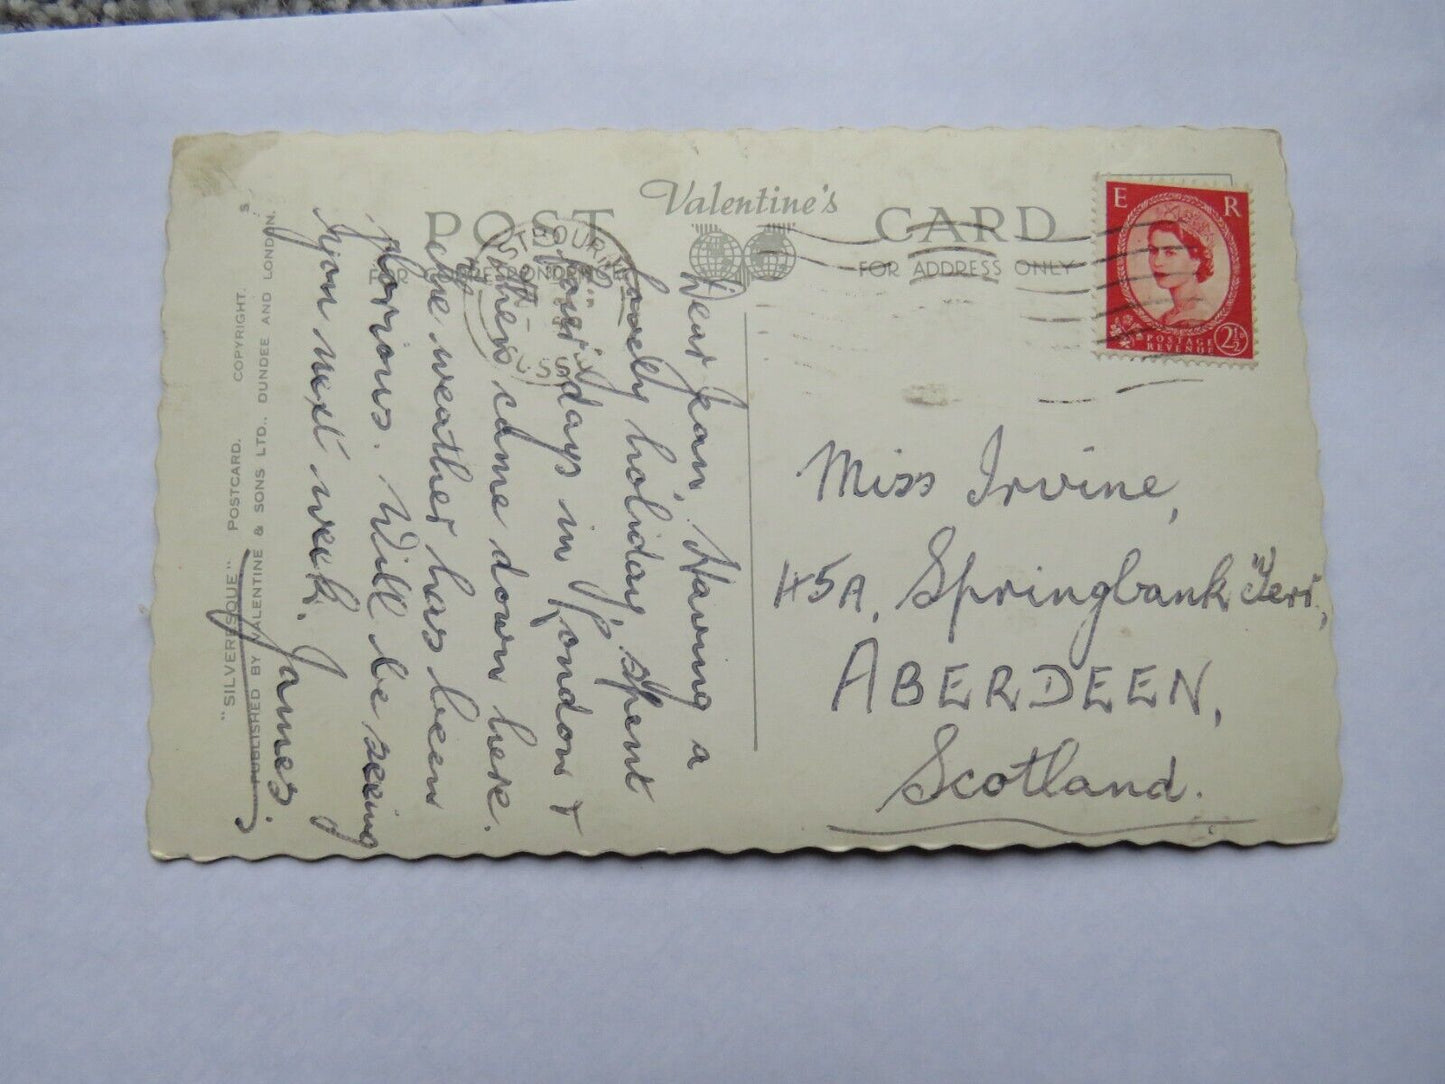 Valentine's
POST CARD
FOR CORRESPONDENCE
FOR ADDRESS ONLY
E R
POSTAGE
REVENUE
2½D
EASTBOURNE
SUSSEX
Dear Jean, Having a
lovely holiday, spent
four days in London &
then came down here.
The weather has been
glorious. Will be seeing
you next week.
James.
Miss Irvine,
45A, Springbank Terr.,
ABERDEEN,
Scotland.
"SILVERESQUE" POSTCARD. COPYRIGHT. S.
PUBLISHED BY VALENTINE & SONS LTD., DUNDEE AND LONDON.